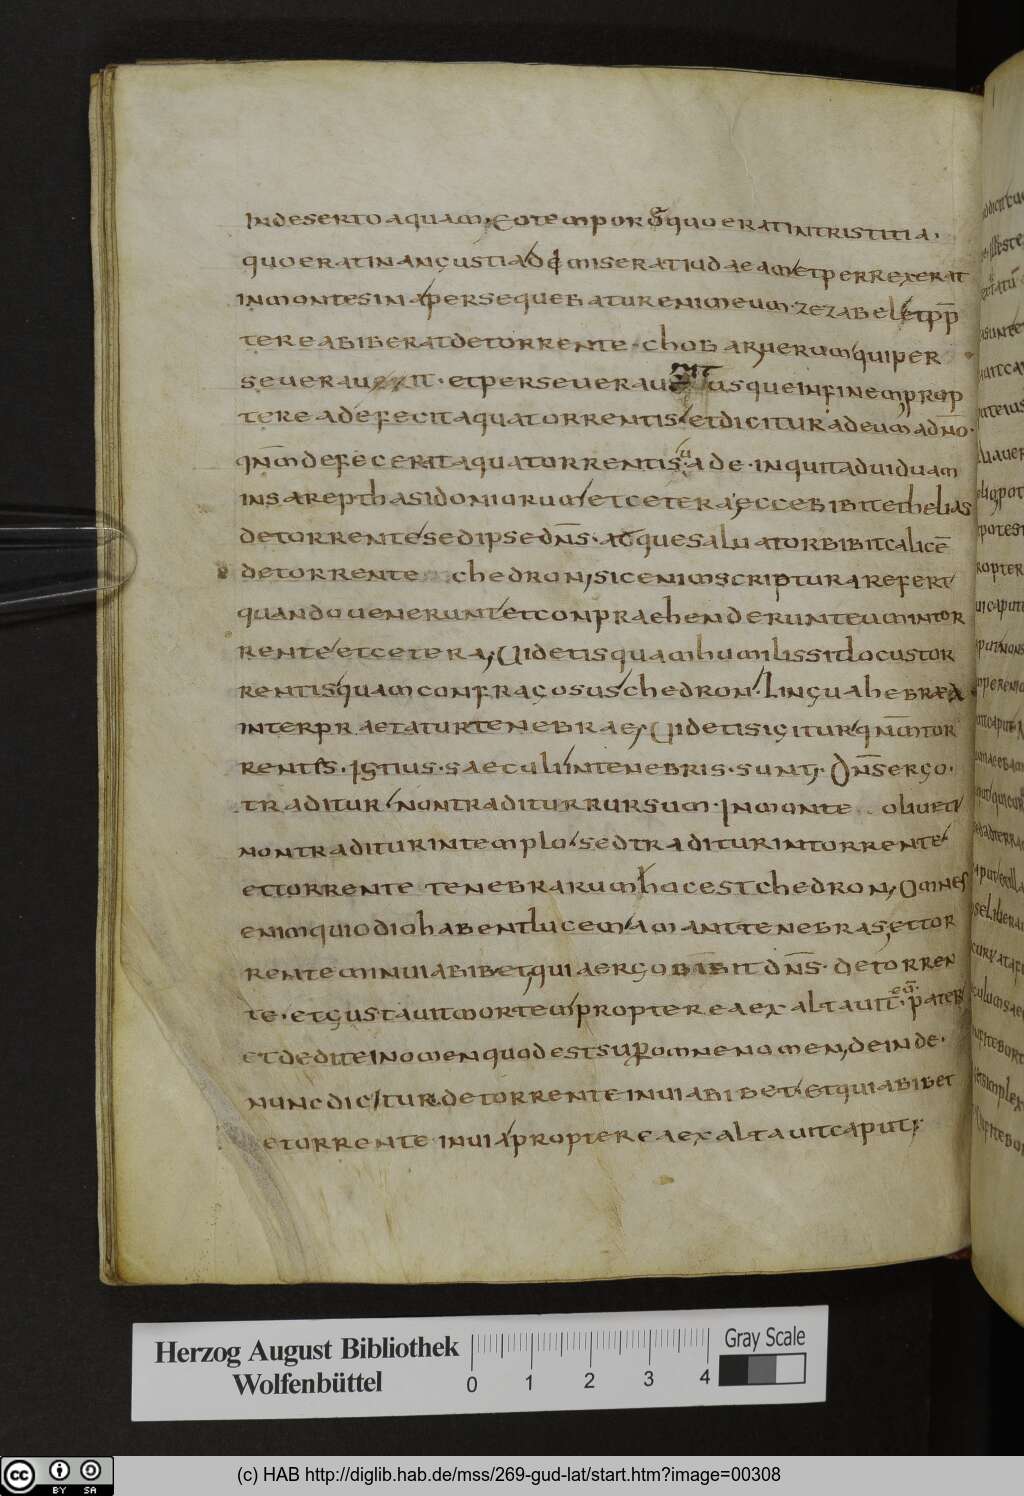 indeserto aquam, Eo tempore quo erat in tristitia.
quo erat in angustia dē miserat iudaeam et perrexerat
in montes sina persequebatur enim eum. zezabel et pp̄
terea biberat de torrente. chobar, uerum qui per
seuerauit. et perseuerauit usque in finem prop
terea defecit aqua torrentis et dicitur ad eum, ad dn̄o.
qn̄m defecerat aqua torrentis. uade. inquit ad uiduam
in sareptha sidoniorum et cetera, ecce bibit et helias
de torrente sed ipse dn̄s. atque saluator bibit calicē
de torrente chedron, sic enim scriptura refert
quando uenerunt et conpraehenderunt eum in tor
rente et cetera, Uidetis quam humilis sit locus tor
rentis quam confragosus chedron. lingua hebraea
interpraetatur tenebrae, Uidetis igitur qn̄m tor
rentes. Istius. saeculi in tenebris. sunt. Dn̄s ergo.
traditur non traditur rursum. In monte oliueti
non traditur in templo sed traditur in torrente
et torrente tenebrarum hoc est chedron, Omnes
enim qui odio habent lucem amant tenebras, et tor
rentem in uia bibet, qui a ergo bibit dn̄s. de torren
te. et gustauit mortem propterea exaltauit eū. pater
et dedit ei nomen quod est sup̲ omne nomen, deinde.
nunc dicitur. de torrente in uia bibet. et quia bibet
etorrente in uia propterea exaltauit caput;
Herzog August Bibliothek
Wolfenbüttel
0 1 2 3 4
Gray Scale
cc BY SA
(c) HAB http://diglib.hab.de/mss/269-gud-lat/start.htm?image=00308